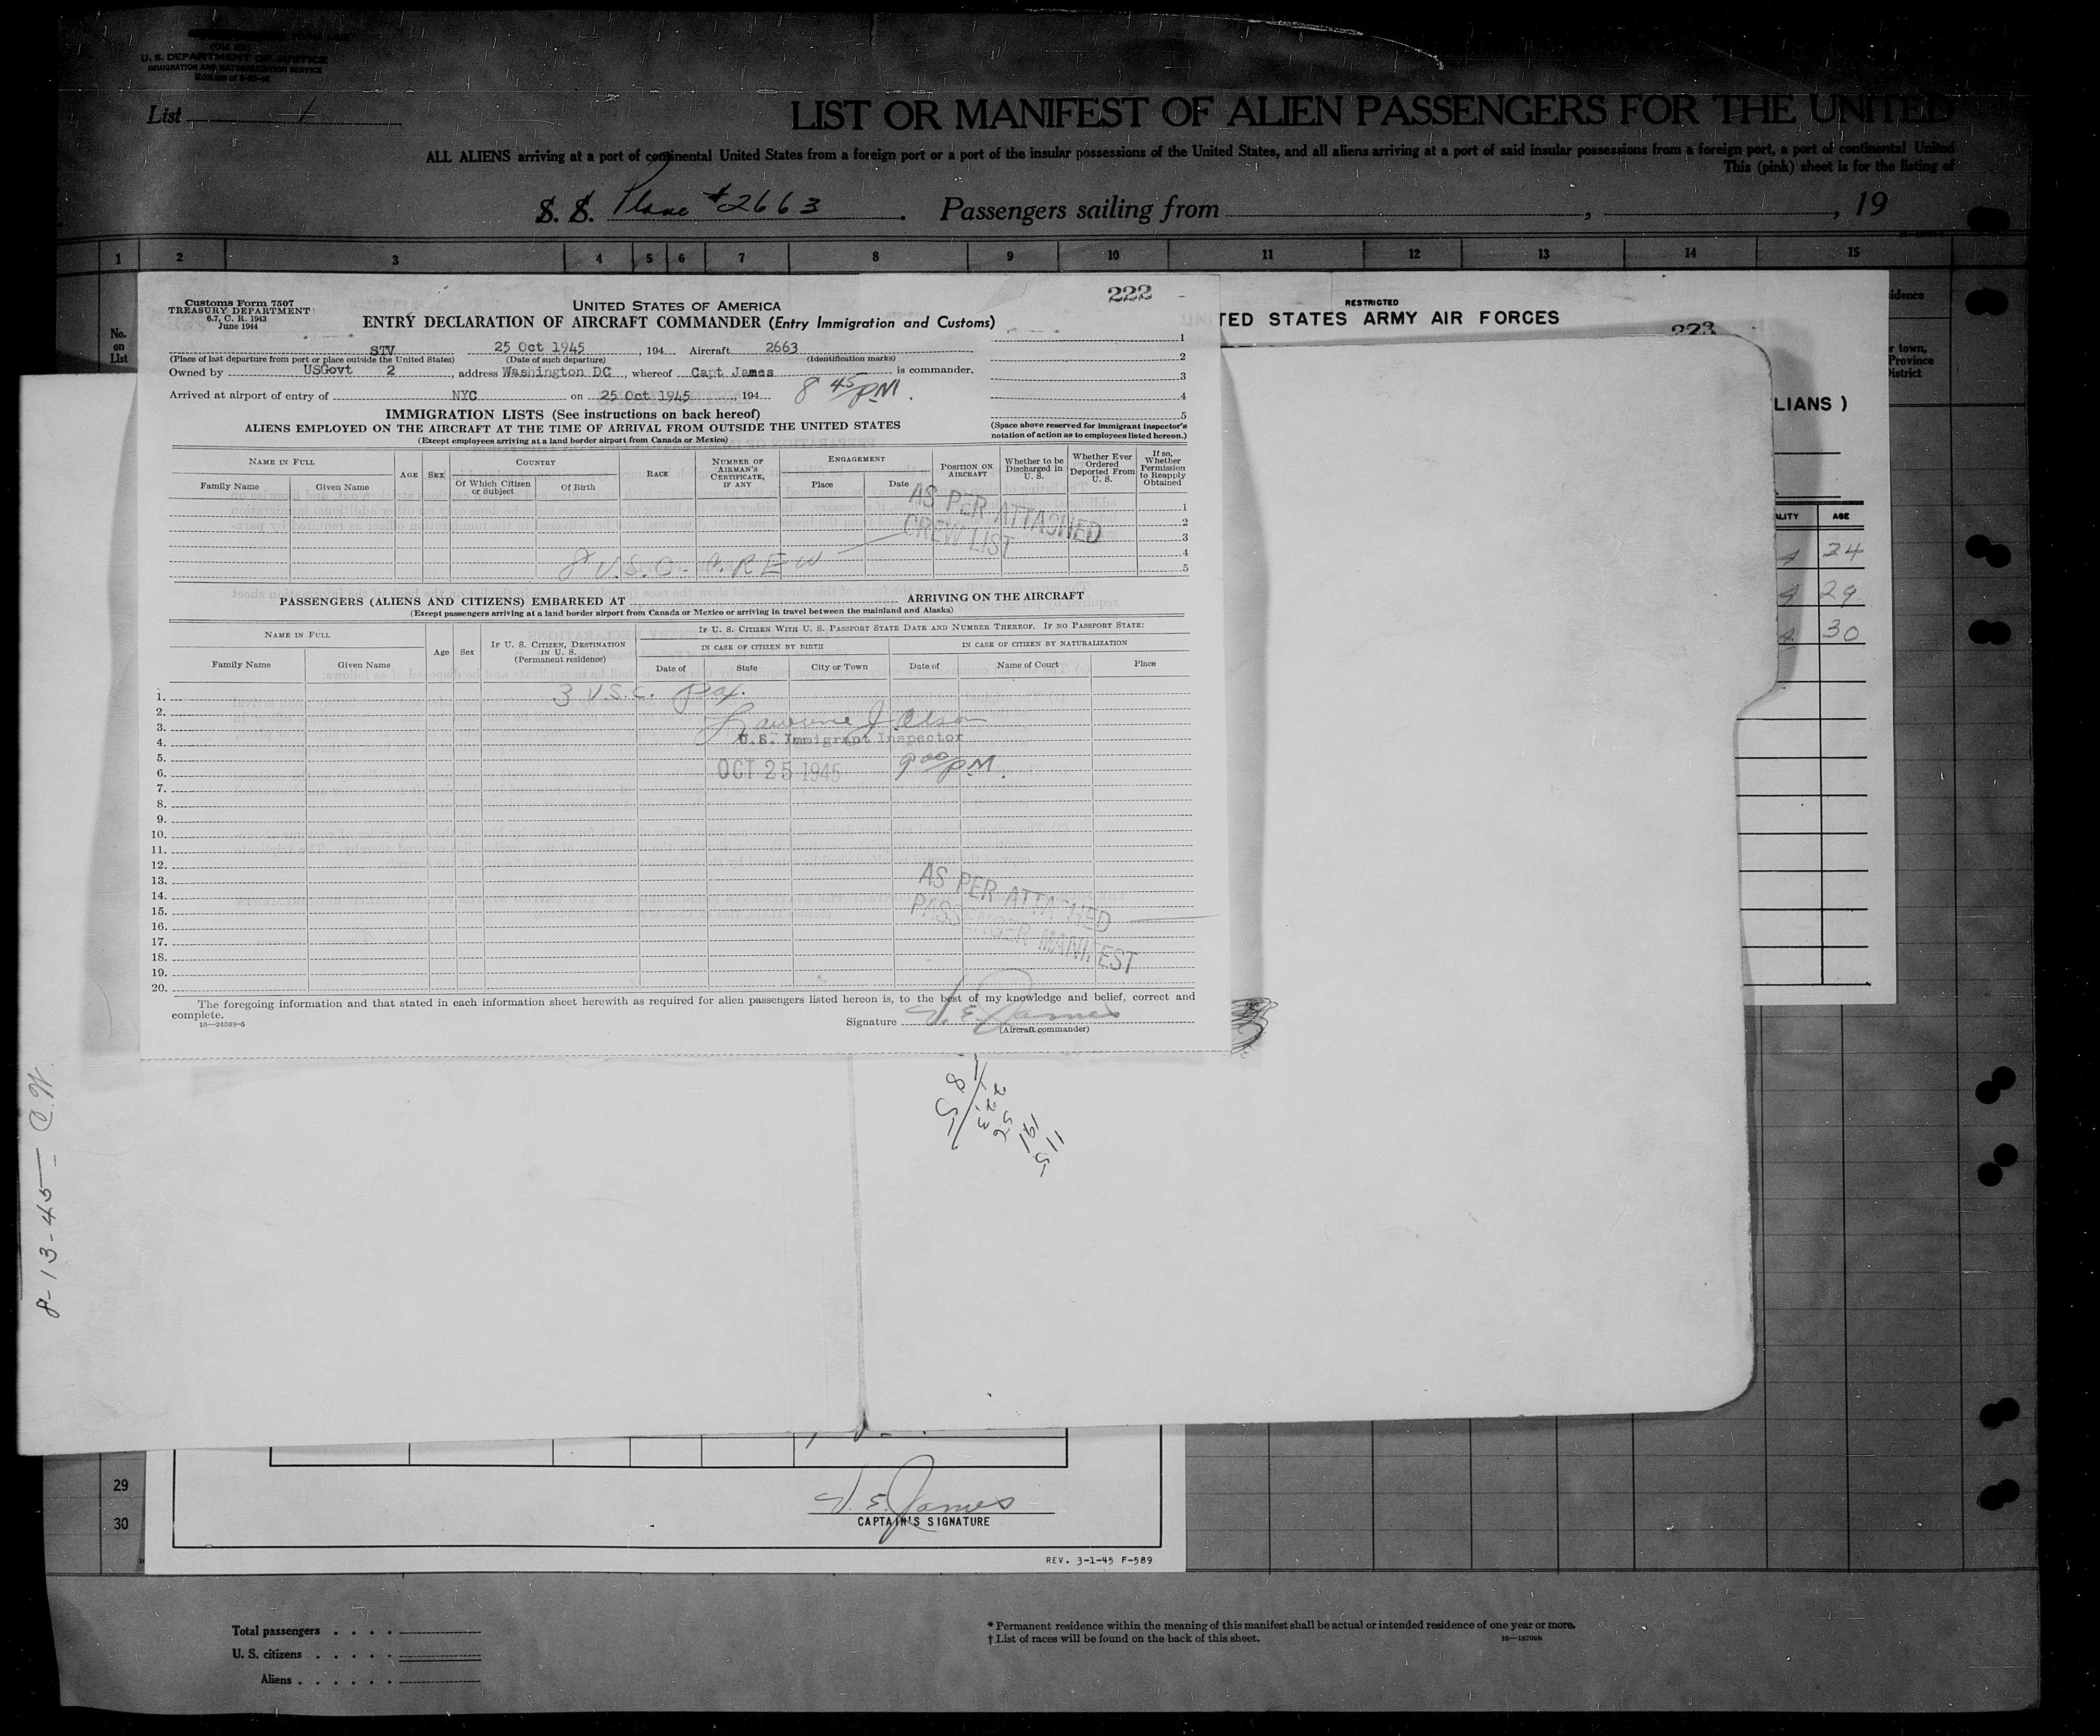 (Old 500)
U. S. DEPARTMENT OF JUSTICE
IMMIGRATION AND NATURALIZATION SERVICE
List 1
LIST OR MANIFEST OF ALIEN PASSENGERS FOR THE UNITED
ALL ALIENS arriving at a port of continental United States from a foreign port or a port of the insular possessions of the United States, and all aliens arriving at a port of said insular possessions from a foreign port, a port of continental United
This (pink) sheet is for the listing of
S. S. Plane #2663 . Passengers sailing from , , 19
1 2 3 4 5 6 7 8 9 10 11 12 13 14 15
No. on List
idence
r town,
Province
District
Customs Form 7507
TREASURY DEPARTMENT
6.7, C. R. 1943
June 1944
UNITED STATES OF AMERICA
222
ENTRY DECLARATION OF AIRCRAFT COMMANDER (Entry Immigration and Customs)
STV 25 Oct 1945 , 194 Aircraft 2663
(Place of last departure from port or place outside the United States) (Date of such departure) (Identification marks)
Owned by USGovt 2 , address Washington DC , whereof Capt James is commander.
Arrived at airport of entry of NYC on 25 Oct 1945 , 194 8 45 PM .
1
2
3
4
5
(Space above reserved for immigrant inspector's notation of action as to employees listed hereon.)
IMMIGRATION LISTS (See instructions on back hereof)
ALIENS EMPLOYED ON THE AIRCRAFT AT THE TIME OF ARRIVAL FROM OUTSIDE THE UNITED STATES
(Except employees arriving at a land border airport from Canada or Mexico)
NAME IN FULL
Family Name Given Name
AGE SEX
COUNTRY
Of Which Citizen or Subject Of Birth
RACE
NUMBER OF AIRMAN'S CERTIFICATE, IF ANY
ENGAGEMENT
Place Date
POSITION ON AIRCRAFT
Whether to be Discharged in U. S.
Whether Ever Ordered Deported From U. S.
If so, Whether Permission to Reapply Obtained
1
2
3
4
5
AS PER ATTACHED
CREW LIST
8 U.S.C. CREW
PASSENGERS (ALIENS AND CITIZENS) EMBARKED AT ARRIVING ON THE AIRCRAFT
(Except passengers arriving at a land border airport from Canada or Mexico or arriving in travel between the mainland and Alaska)
NAME IN FULL
Family Name Given Name
Age Sex
IF U. S. CITIZEN, DESTINATION IN U. S.
(Permanent residence)
IF U. S. CITIZEN WITH U. S. PASSPORT STATE DATE AND NUMBER THEREOF. IF NO PASSPORT STATE:
IN CASE OF CITIZEN BY BIRTH
Date of State City or Town
IN CASE OF CITIZEN BY NATURALIZATION
Date of Name of Court Place
1.
2.
3.
4.
5.
6.
7.
8.
9.
10.
11.
12.
13.
14.
15.
16.
17.
18.
19.
20.
3 U.S.C. Pax.
Lawrence J Olson
U.S. Immigrant Inspector
OCT 25 1945 9 00 PM.
AS PER ATTACHED
PASSENGER MANIFEST
The foregoing information and that stated in each information sheet herewith as required for alien passengers listed hereon is, to the best of my knowledge and belief, correct and
complete.
16—24598-5
Signature V. E. James
(Aircraft commander)
RESTRICTED
TED STATES ARMY AIR FORCES
223
LIANS )
ALITY AGE
24
29
30
8-13-45 - C.W.
29
30
V. E. James
CAPTAIN'S SIGNATURE
REV. 3-1-45 F-589
Total passengers
U. S. citizens
Aliens
* Permanent residence within the meaning of this manifest shall be actual or intended residence of one year or more.
† List of races will be found on the back of this sheet.